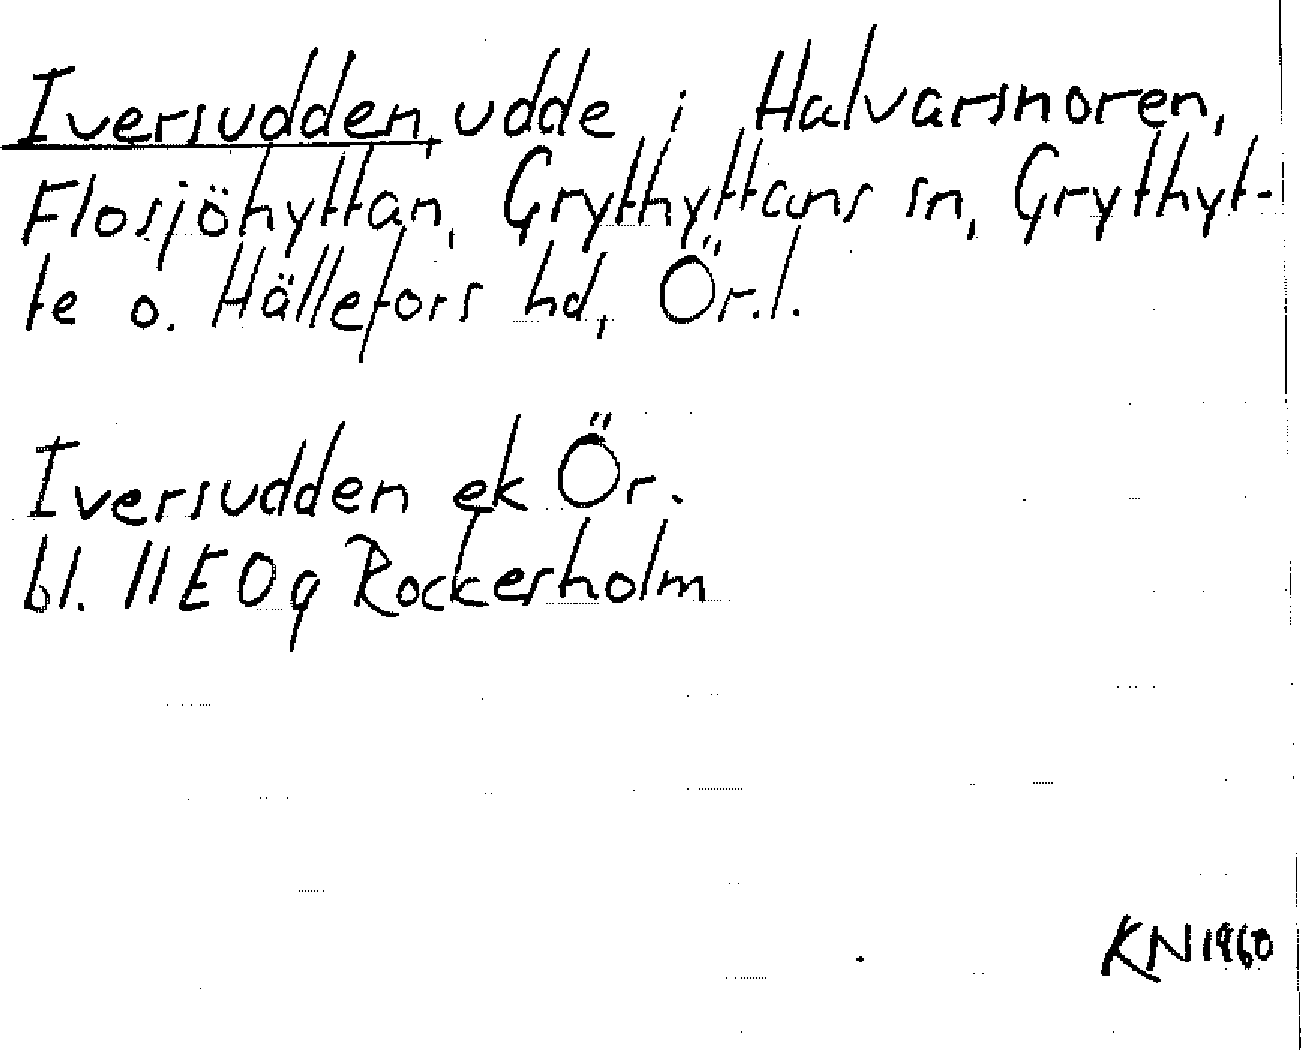 Iversudden, udde i Halvarsnoren,
Flosjöhyttan, Grythyttans sn, Grythyt-
te o. Hällefors hd, Ör.l.
Iversudden ek Ör.
bl. 11E0g Rockesholm
KN 1960